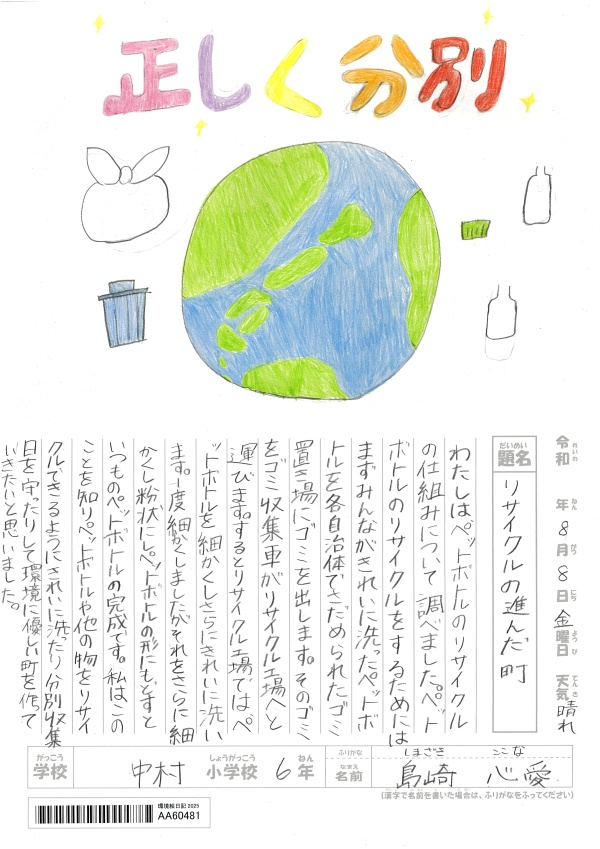 正しく分別
令和 年 8月 8日 金曜日 天気 晴れ
れいわ ねん がつ にち ようび てんき
だいめい
題名 リサイクルの進んだ町
わたしはペットボトルのリサイクル
の仕組みについて調べました。ペット
ボトルのリサイクルをするためには
まずみんながきれいに洗ったペットボ
トルを各自治体でさだめられたゴミ
置き場にゴミを出します。そのゴミ
をゴミ収集車がリサイクル工場へと
運びます。するとリサイクル工場ではペ
ットボトルを細かくしさらにきれいに洗い
ます。1度細かくしましたがそれをさらに細
かくし粉状にしペットボトルの形にもどすと
いつものペットボトルの完成です。私はこの
ことを知りペットボトルや他の物をリサイ
クルできるようにきれいに洗ったり分別収集
日を守ったりして環境に優しい町を作って
いきたいと思いました。
がっこう しょうがっこう ねん
学校 中村 小学校 6年
ふりがな しまざき ここな
なまえ
名前 島崎 心愛
(漢字で名前を書いた場合は、ふりがなをふってください)
環境絵日記 2025
AA60481